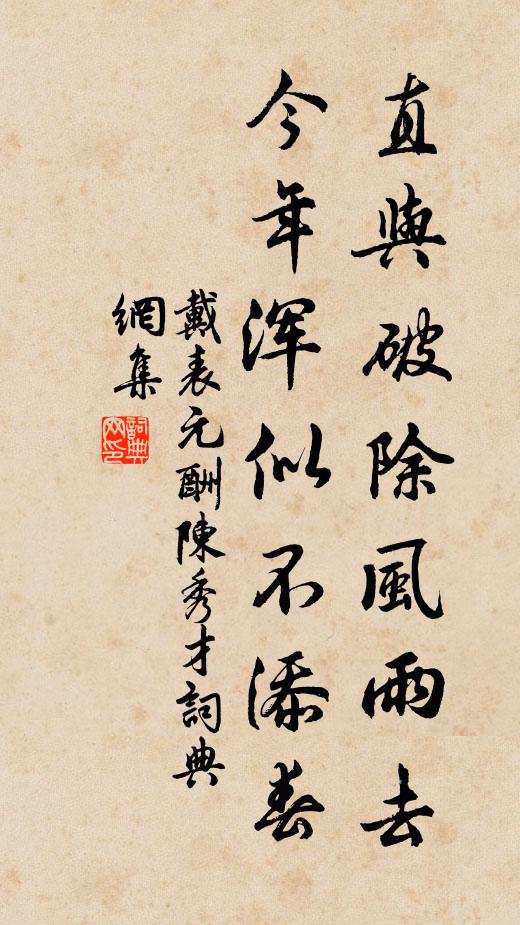 直與破除風雨去
今年渾似不添春
戴表元酬陳秀才詞典
網集
詞典网印